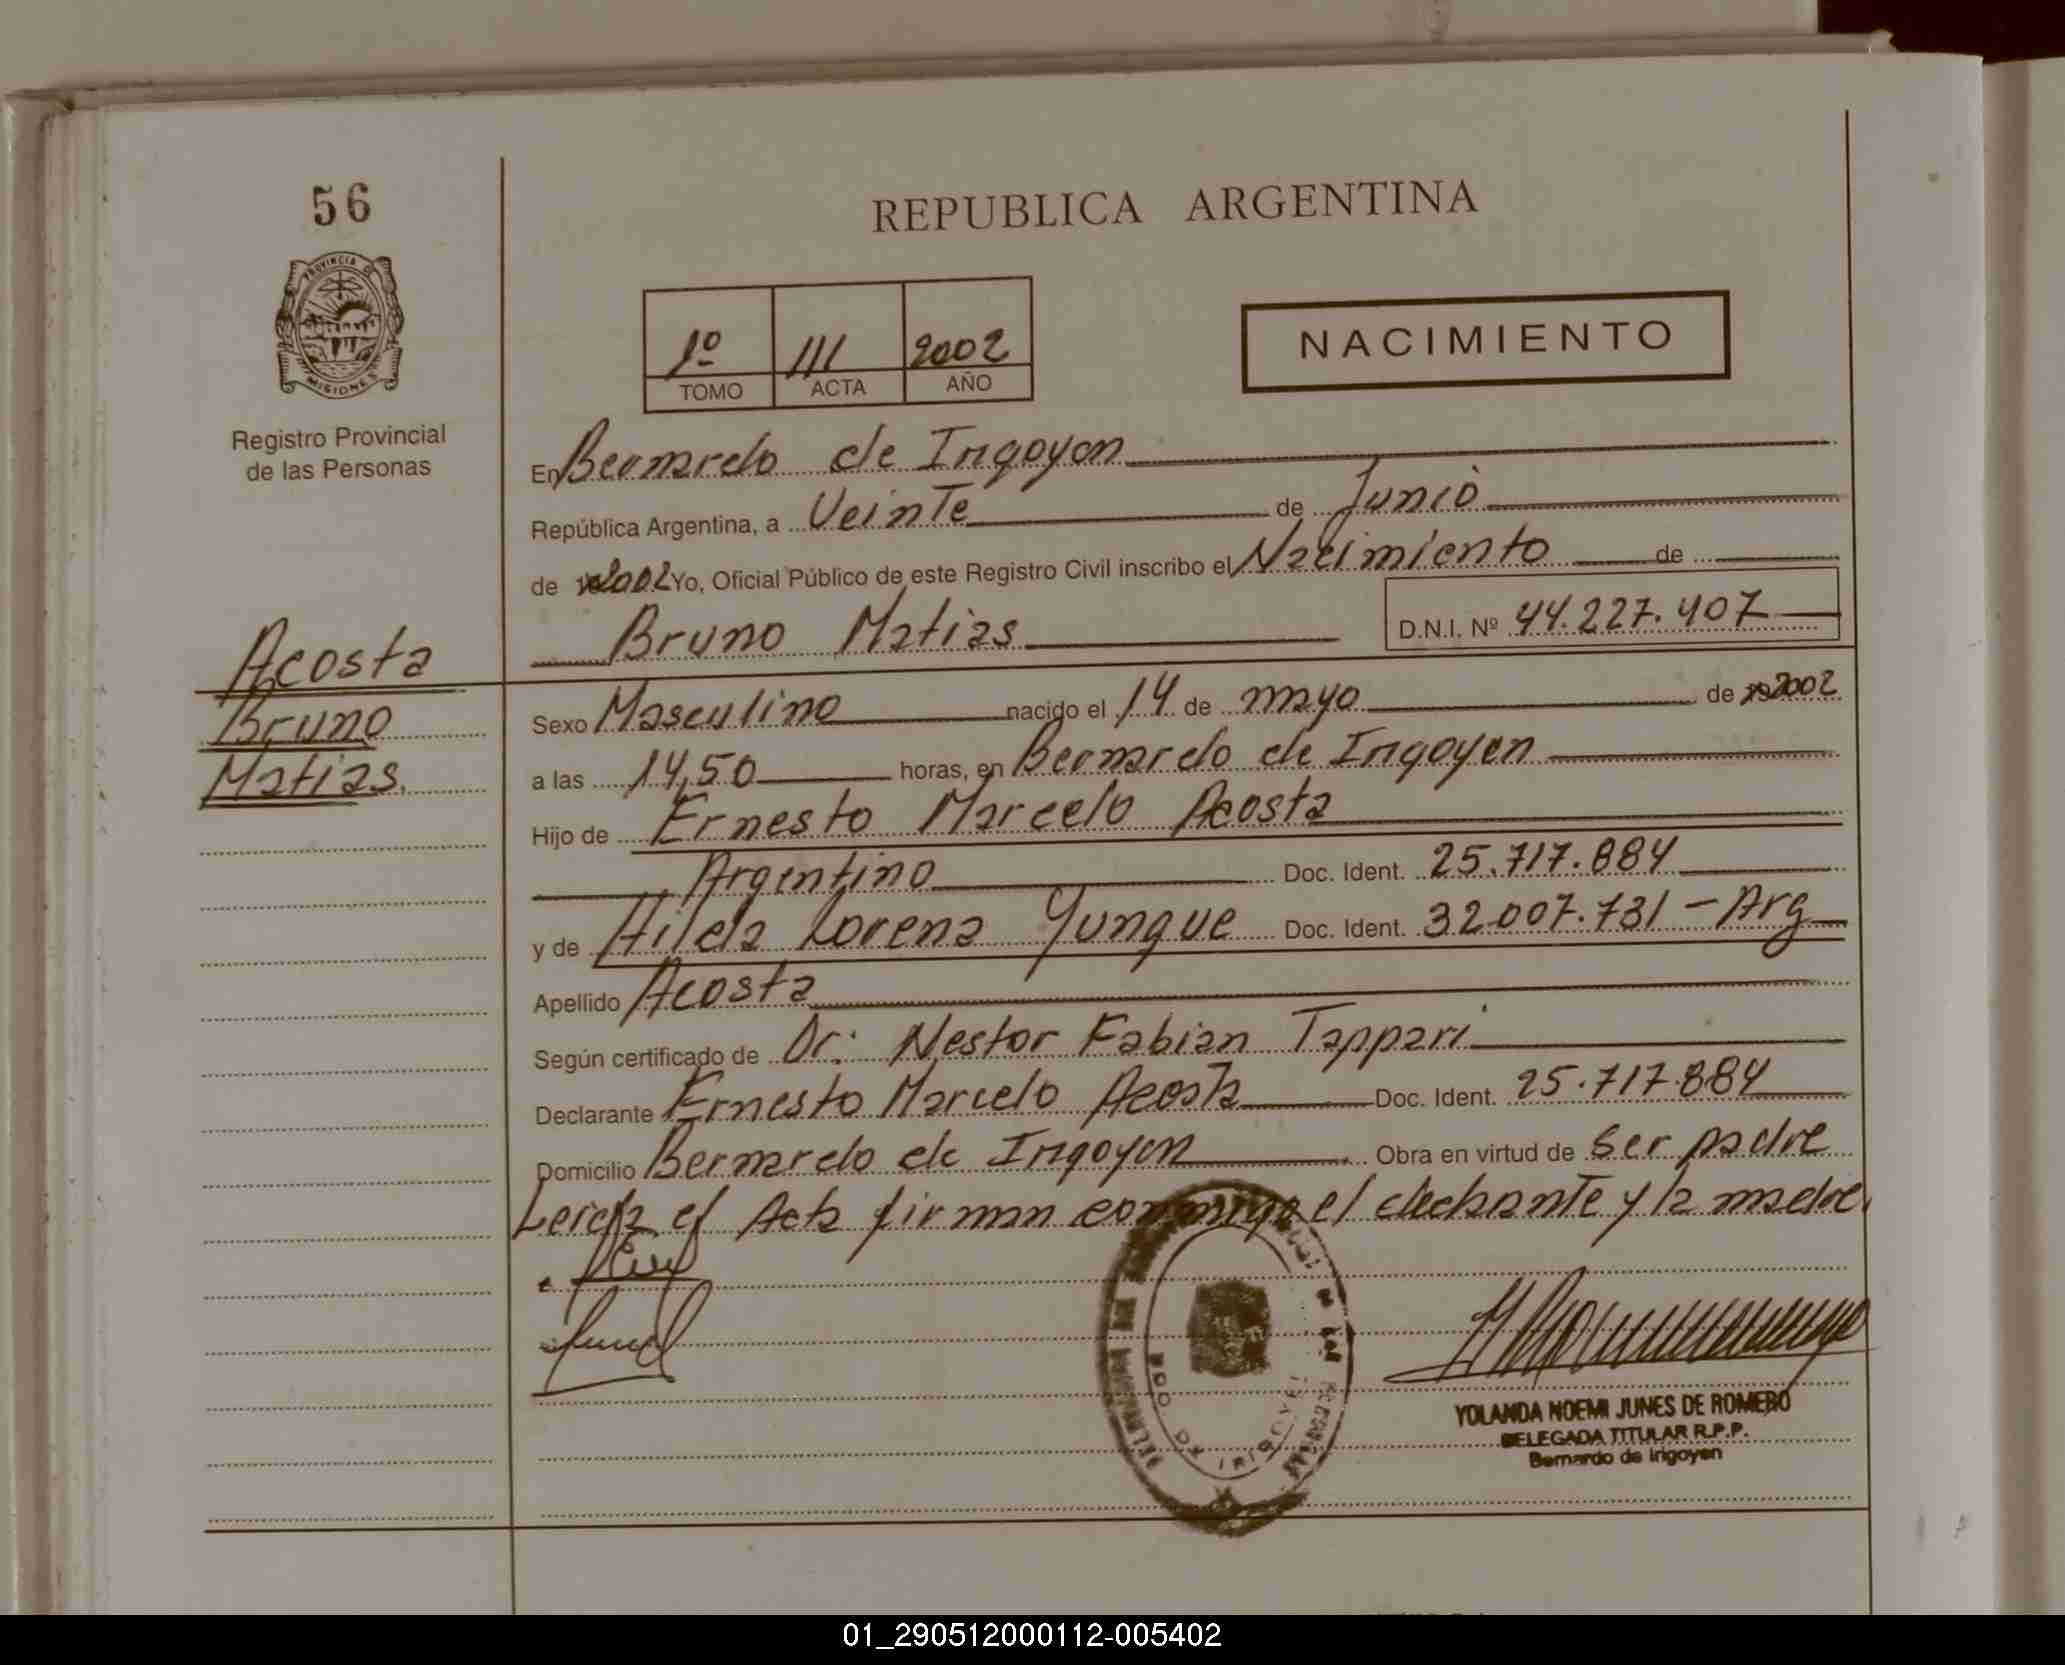 56
REPUBLICA ARGENTINA
PROVINCIA DE
MISIONES
Registro Provincial
de las Personas
1º 111 2002
TOMO ACTA AÑO
NACIMIENTO
En Bernardo de Irigoyen
República Argentina, a Veinte de Junio
de 2002 Yo, Oficial Público de este Registro Civil inscribo el Nacimiento de
Bruno Matias D.N.I. Nº 44.227.407
Acosta
Bruno
Matias.
Sexo Masculino nacido el 14 de mayo de 2002
a las 14,50 horas, en Bernardo de Irigoyen
Hijo de Ernesto Marcelo Acosta
Argentino Doc. Ident. 25.717.884
y de Hilda Lorena Yunque Doc. Ident. 32.007.731 - Arg
Apellido Acosta
Según certificado de Dr: Nestor Fabian Tappari
Declarante Ernesto Marcelo Acosta Doc. Ident. 25.717.884
Domicilio Bernardo de Irigoyen Obra en virtud de Ser padre
Leida el Acta firman conmigo el declarante y la madre.
BDO. DE IRIGOYEN
YOLANDA NOEMI JUNES DE ROMERO
DELEGADA TITULAR R.P.P.
Bernardo de Irigoyen
01_290512000112-005402